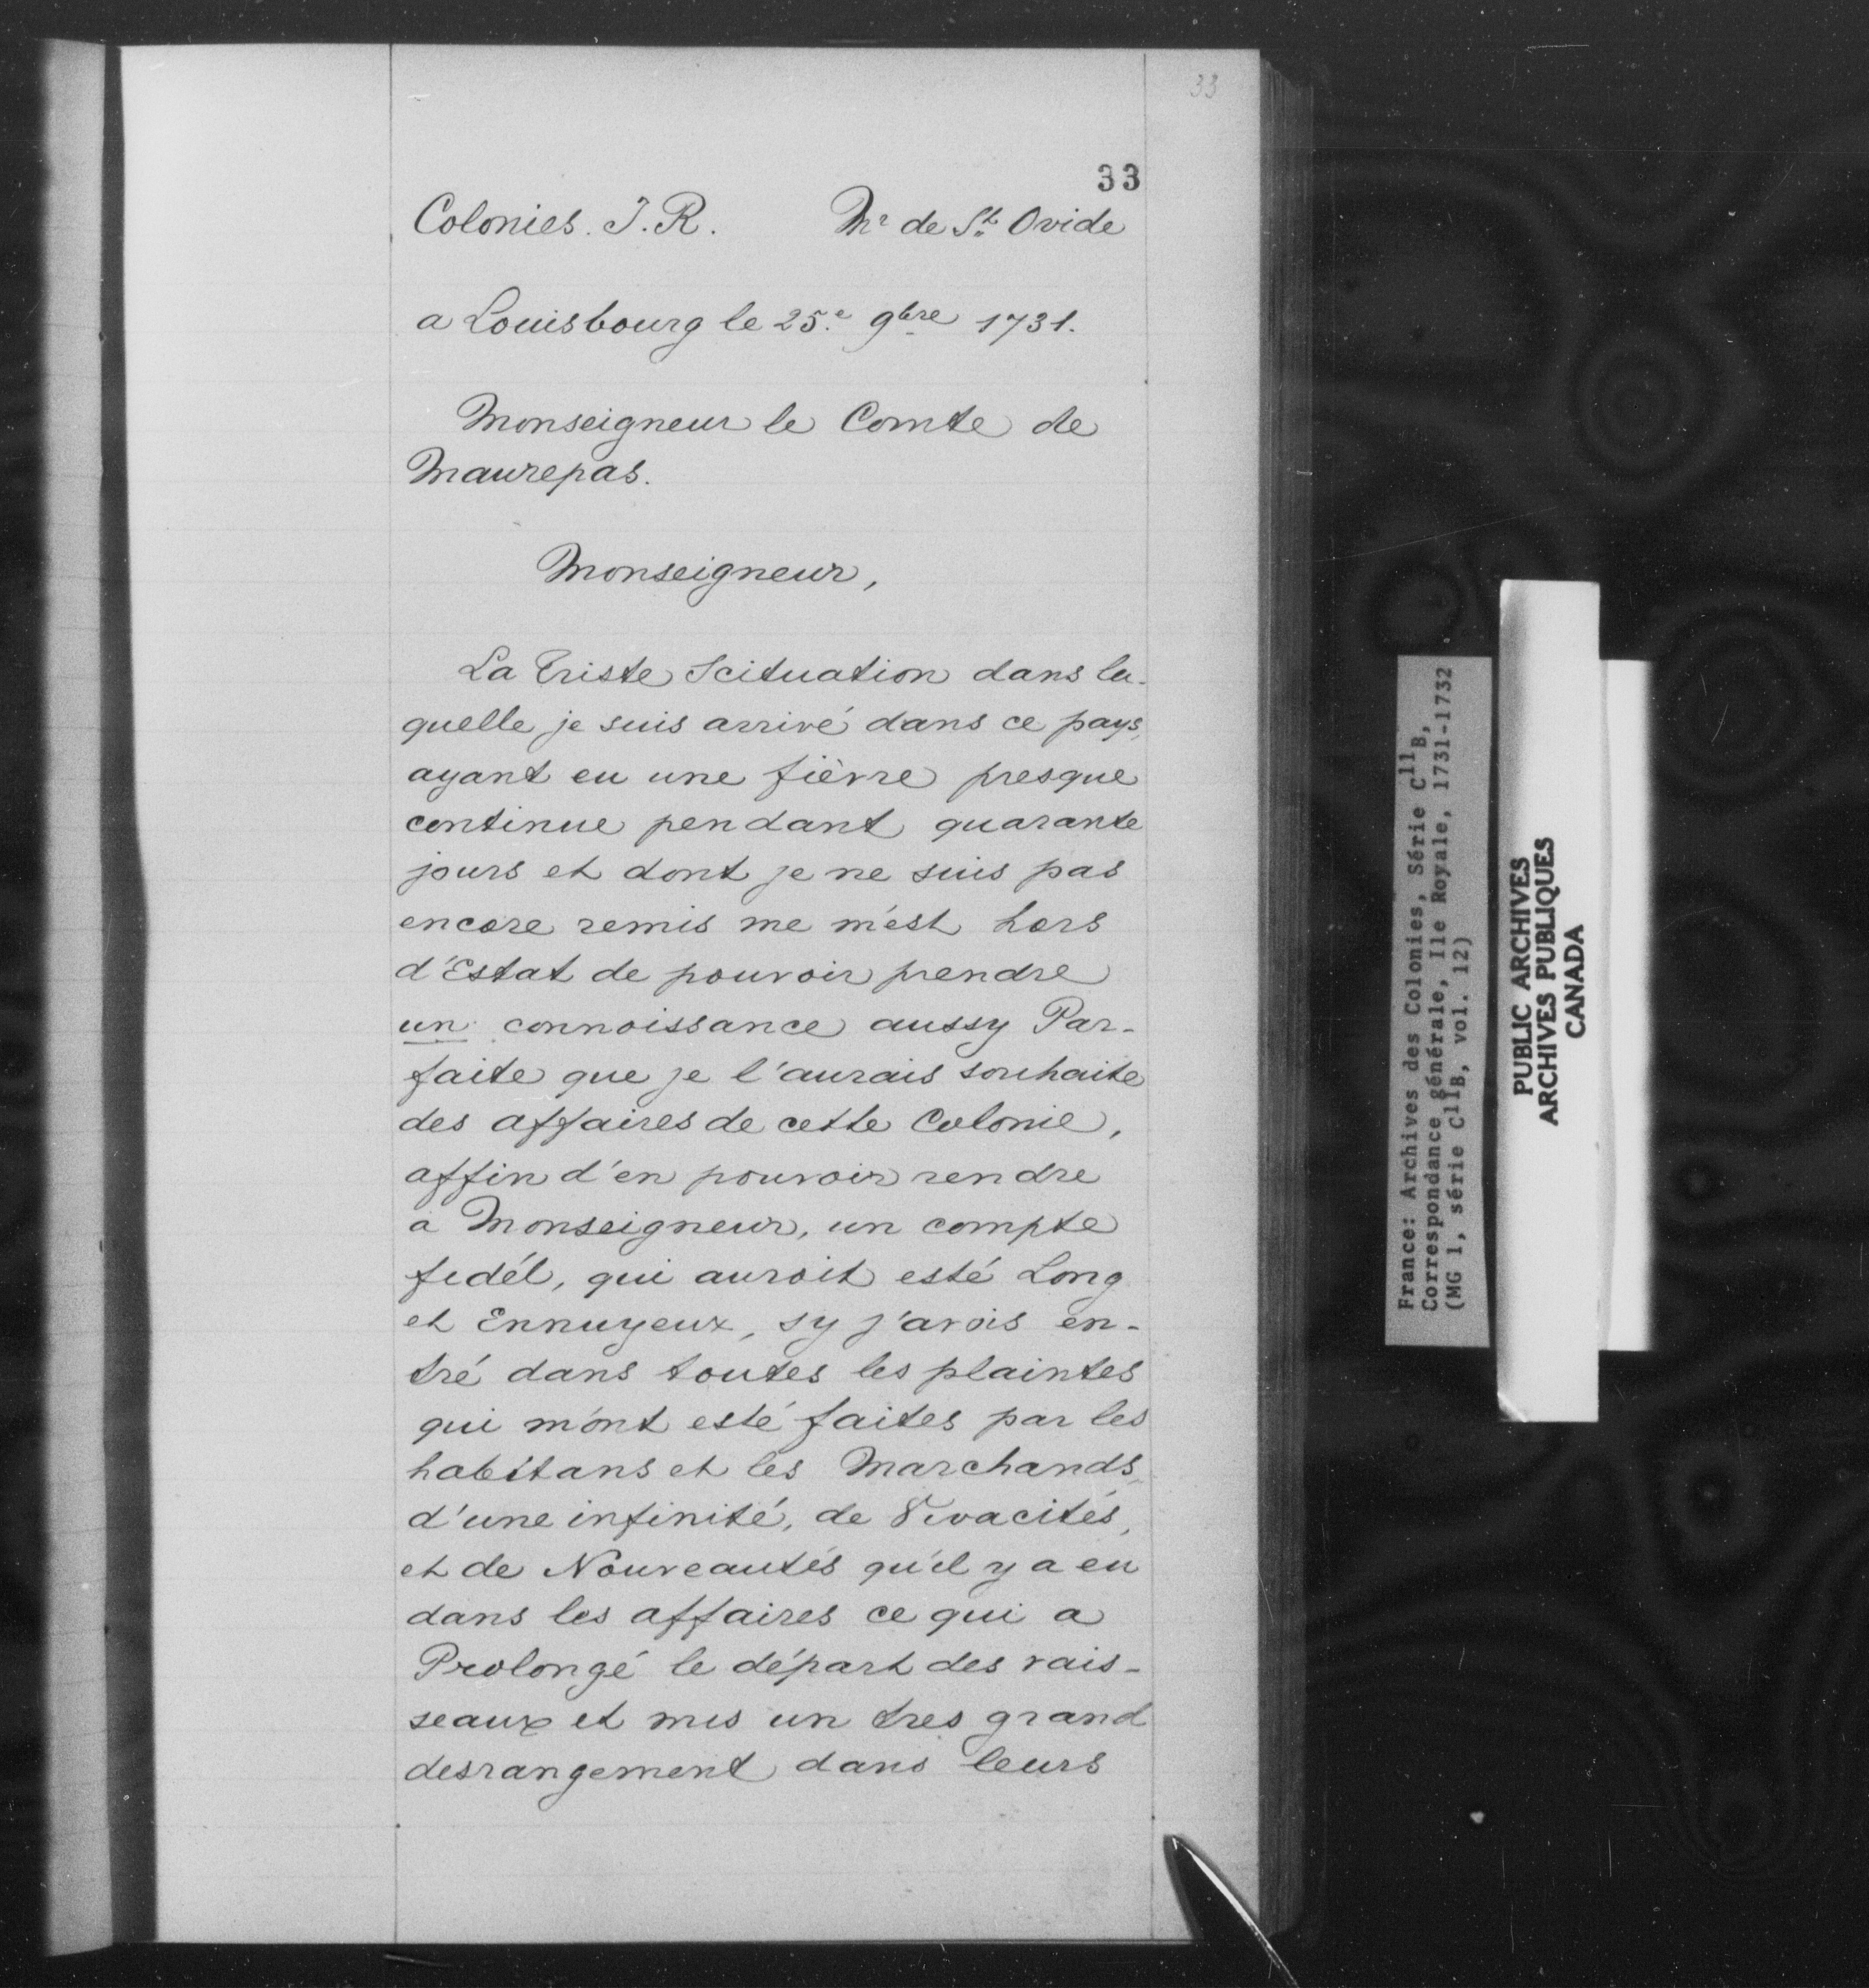 33
33
Colonies. I. R. Mr de St Ovide
a Louisbourg le 25.e 9bre 1731.
Monseigneur le Comte de
Maurepas.
Monseigneur,
La Triste Scituation dans la-
quelle je suis arrivé dans ce pays,
ayant eu une fièvre presque
continue pendant quarante
jours et dont je ne suis pas
encore remis me m'est hors
d'Estat de pouvoir prendre
un connoissance aussy Par-
faite que je l'aurais souhaite
des affaires de cette Colonie,
affin d'en pouvoir rendre
a Monseigneur, un compte
fidél, qui auroit esté Long
et Ennuyeux, sy j'avois en-
tré dans toutes les plaintes
qui m'ont esté faites par les
habitans et les Marchands,
d'une infinité, de Vivacités,
et de Nouveautés qu'il y a eu
dans les affaires ce qui a
Prolongé le départ des vais-
seaux et mis un tres grand
desrangement dans leurs
France: Archives des Colonies, Série C11B,
Correspondance générale, Ile Royale, 1731-1732
(MG 1, série C11B, vol. 12)
PUBLIC ARCHIVES
ARCHIVES PUBLIQUES
CANADA